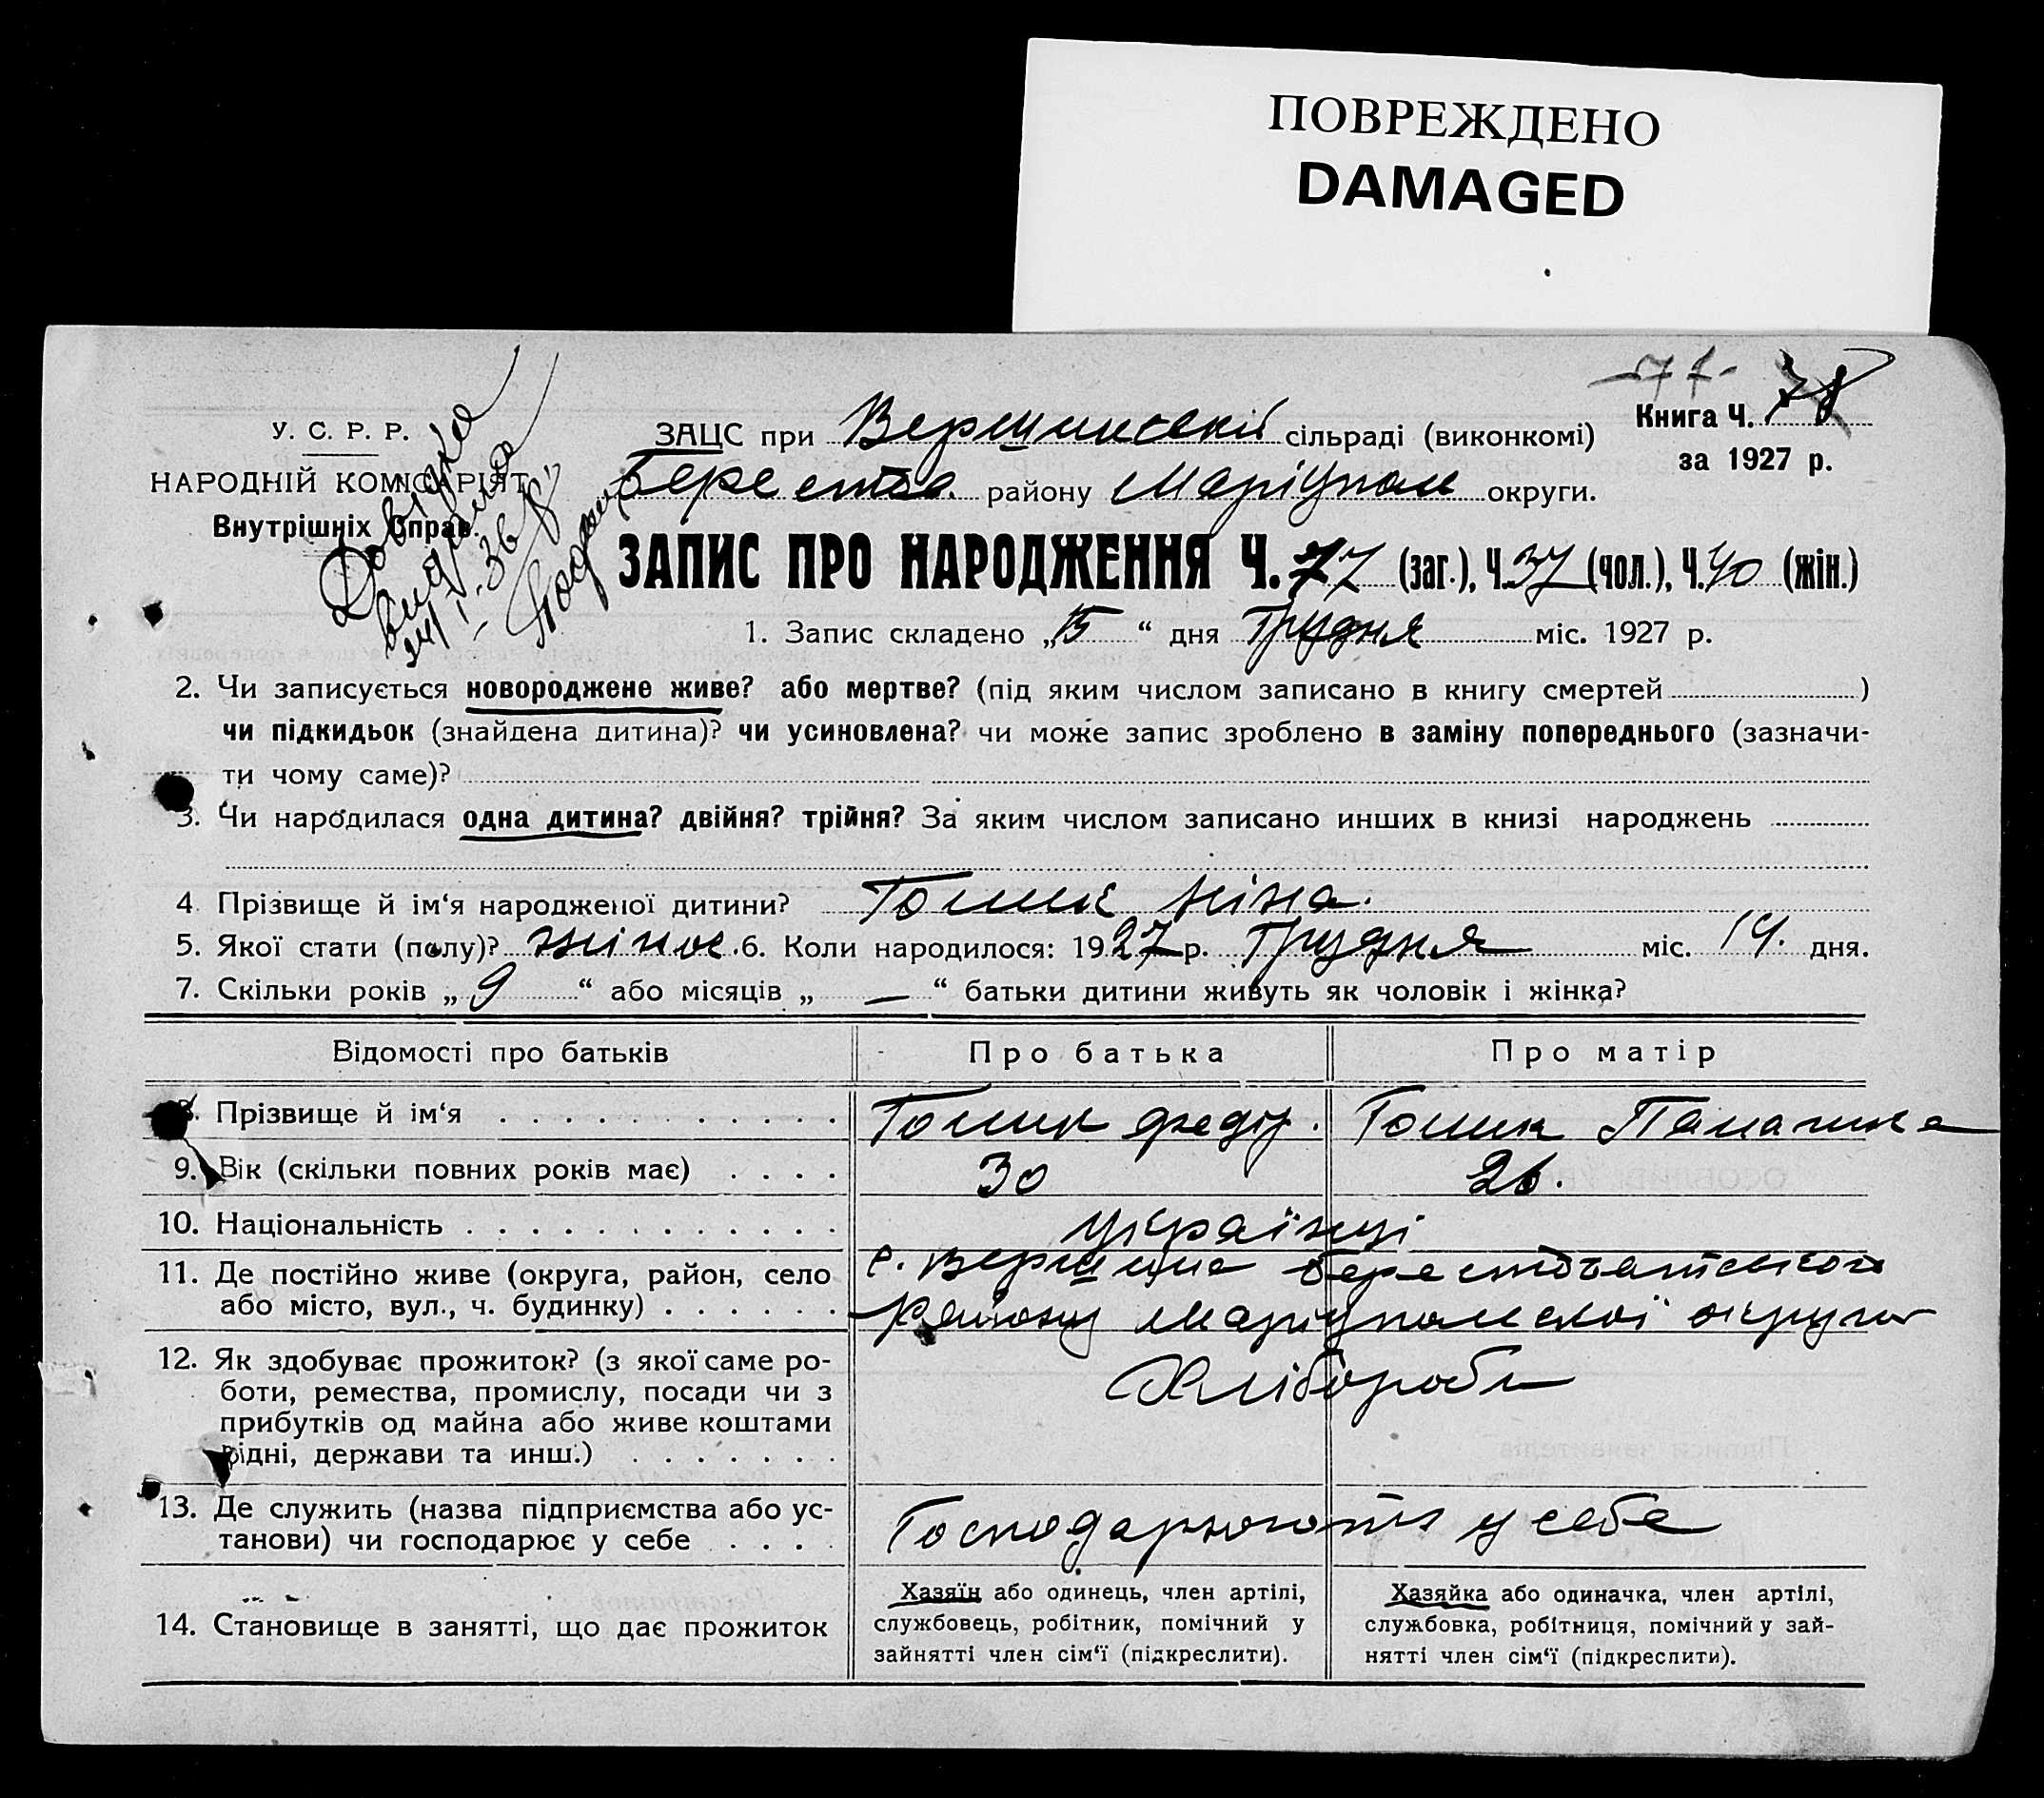 ПОВРЕЖДЕНО
DAMAGED
77- 78
У. С. Р. Р.
НАРОДНІЙ КОМІСАРІЯТ
Внутрішніх Справ.
Довідка
видана
24/I-36 р.
ЗАЦС при Вершинській сільраді (виконкомі)
Берестов. району Маріупол округи.
Книга Ч.
за 1927 р.
ЗАПИС ПРО НАРОДЖЕННЯ Ч. 77 (заг.), Ч. 37 (чол.), Ч. 40 (жін.)
1. Запис складено „15“ дня Грудня міс. 1927 р.
2. Чи записується новороджене живе? або мертве? (під яким числом записано в книгу смертей )
чи підкидьок (знайдена дитина)? чи усиновлена? чи може запис зроблено в заміну попереднього (зазначи-
ти чому саме)?
3. Чи народилася одна дитина? двійня? трійня? За яким числом записано инших в книзі народжень
4. Прізвище й ім‘я народженої дитини? Гомик Ніна.
5. Якої стати (полу)? жіноє. 6. Коли народилося: 1927 р. Грудня міс. 14. дня.
7. Скільки років „9“ або місяців „—“ батьки дитини живуть як чоловік і жінка?
Відомості про батьків
Про батька
Про матір
8. Прізвище й ім‘я
Гомик Федір.
Гомик
9. Вік (скільки повних років має)
30
26.
10. Національність
українці
11. Де постійно живе (округа, район, село
або місто, вул., ч. будинку)
с. Вершина Берестоватського
району Маріупольскої округи
12. Як здобуває прожиток? (з якої саме ро-
боти, ремества, промислу, посади чи з
прибутків од майна або живе коштами
рідні, держави та инш.)
Хлібороби
13. Де служить (назва підприємства або ус-
танови) чи господарює у себе
Господарюють у себе
14. Становище в занятті, що дає прожиток
Хазяїн або одинець, член артілі,
службовець, робітник, помічний у
зайнятті член сім‘ї (підкреслити).
Хазяйка або одиначка, член артілі,
службовка, робітниця, помічний у зай-
нятті член сім‘ї (підкреслити).